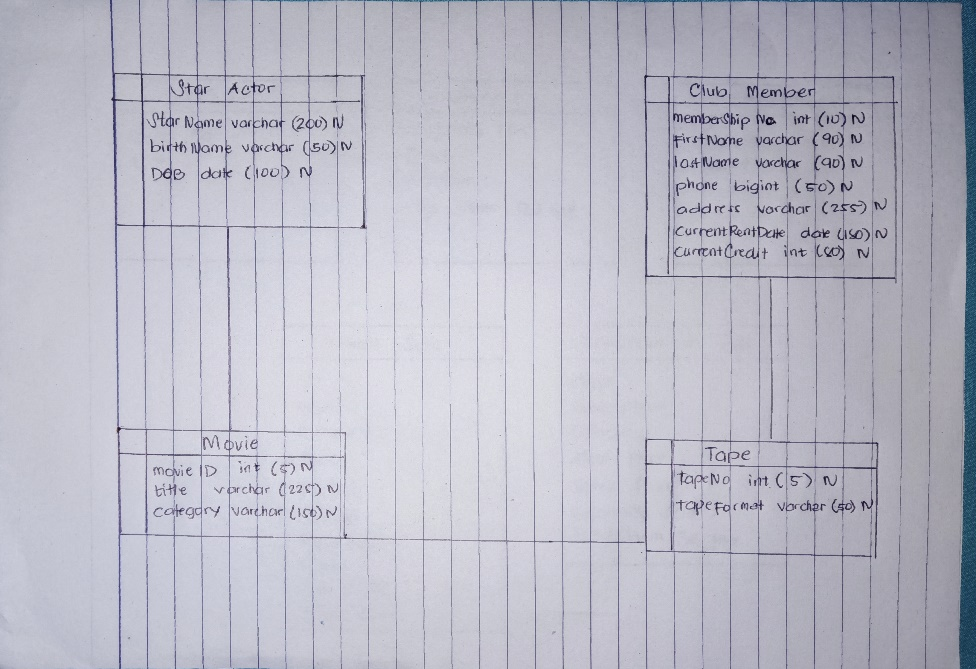 Star Actor
Star Name varchar (200) N
birth Name varchar (50) N
DOB date (100) N
Club Member
memberShip No int (10) N
FirstName varchar (90) N
lastName varchar (90) N
phone bigint (50) N
address varchar (255) N
CurrentRentDate date (150) N
CurrentCredit int (80) N
Movie
movie ID int (5) N
title varchar (225) N
category varchar (150) N
Tape
tapeNo int (5) N
tapeFormat varchar (50) N